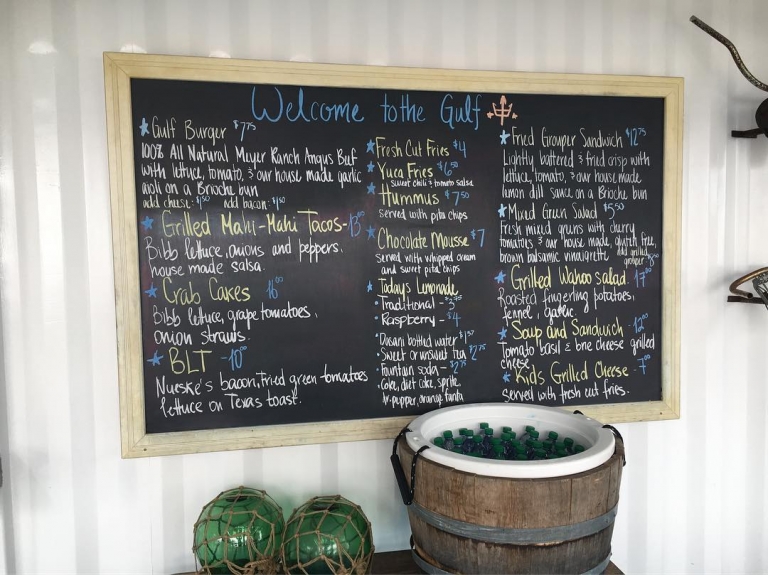 Welcome to the Gulf
Gulf Burger $7.75
100% All Natural Meyer Ranch Angus Beef
with lettuce, tomato, & our house made garlic
aioli on a Brioche bun
add cheese: $1.50 add bacon: $1.50
Grilled Mahi-Mahi Tacos-13
Bibb lettuce, onions and peppers,
house made salsa.
Crab Cakes 16.00
Bibb lettuce, grape tomatoes,
onion straws.
BLT -10.00
Nueske's bacon, Fried green tomatoes
lettuce on Texas toast.
Fresh Cut Fries $4
Yuca Fries $6.50
sweet chili & tomato salsa
Hummus $7.50
served with pita chips
Chocolate Mousse $7
served with whipped cream
and sweet pita chips
Todays Lemonade
Traditional - $3.75
Raspberry - $4
Dasani bottled water $1.50
Sweet or unsweet tea $2.75
Fountain soda - $2.75
Coke, diet coke, sprite,
dr. pepper, orange fanta
Fried Grouper Sandwich $12.75
Lightly battered & fried crisp with
lettuce, tomato, & our house made
lemon dill sauce on a Brioche bun
Mixed Green Salad $5.50
Fresh mixed greens with cherry
tomatoes & our house made, gluten free,
brown balsamic vinaigrette add grilled
grouper 8.00
Grilled Wahoo salad. 17.00
Roasted fingerling potatoes,
fennel, garlic.
Soup and Sandwich - 12.00
Tomato basil & brie cheese grilled
cheese
Kids Grilled Cheese - 7.00
served with fresh cut fries.